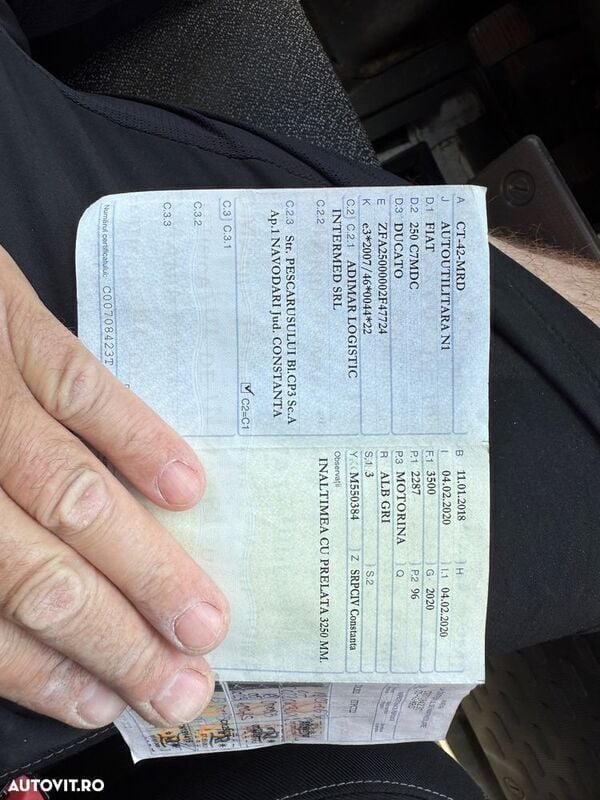 A CT-42-MRD
J AUTOUTILITARA N1
D.1 FIAT
D.2 250 C7MDC
D.3 DUCATO
E ZFA25000002F47724
K e3*2007/46*0044*22
C.2 C.2.1 ADIMAR LOGISTIC
INTERMED SRL
C.2.2
C.2.3 Str. PESCARUSULUI Bl.CP3 Sc.A
Ap.1 NAVODARI Jud. CONSTANTA
C2=C1
C.3 C.3.1
C.3.2
C.3.3
Numărul certificatului: C00708423T
B 11.01.2018 H
I 04.02.2020 I.1 04.02.2020
F.1 3500 G 2020
P.1 2287 P.2 96
P.3 MOTORINA Q
R ALB GRI
S.1 3 S.2
Y M550384 Z SRPCIV Constanta
Observații
INALTIMEA CU PRELATA 3250 MM.
AUTOVIT.RO